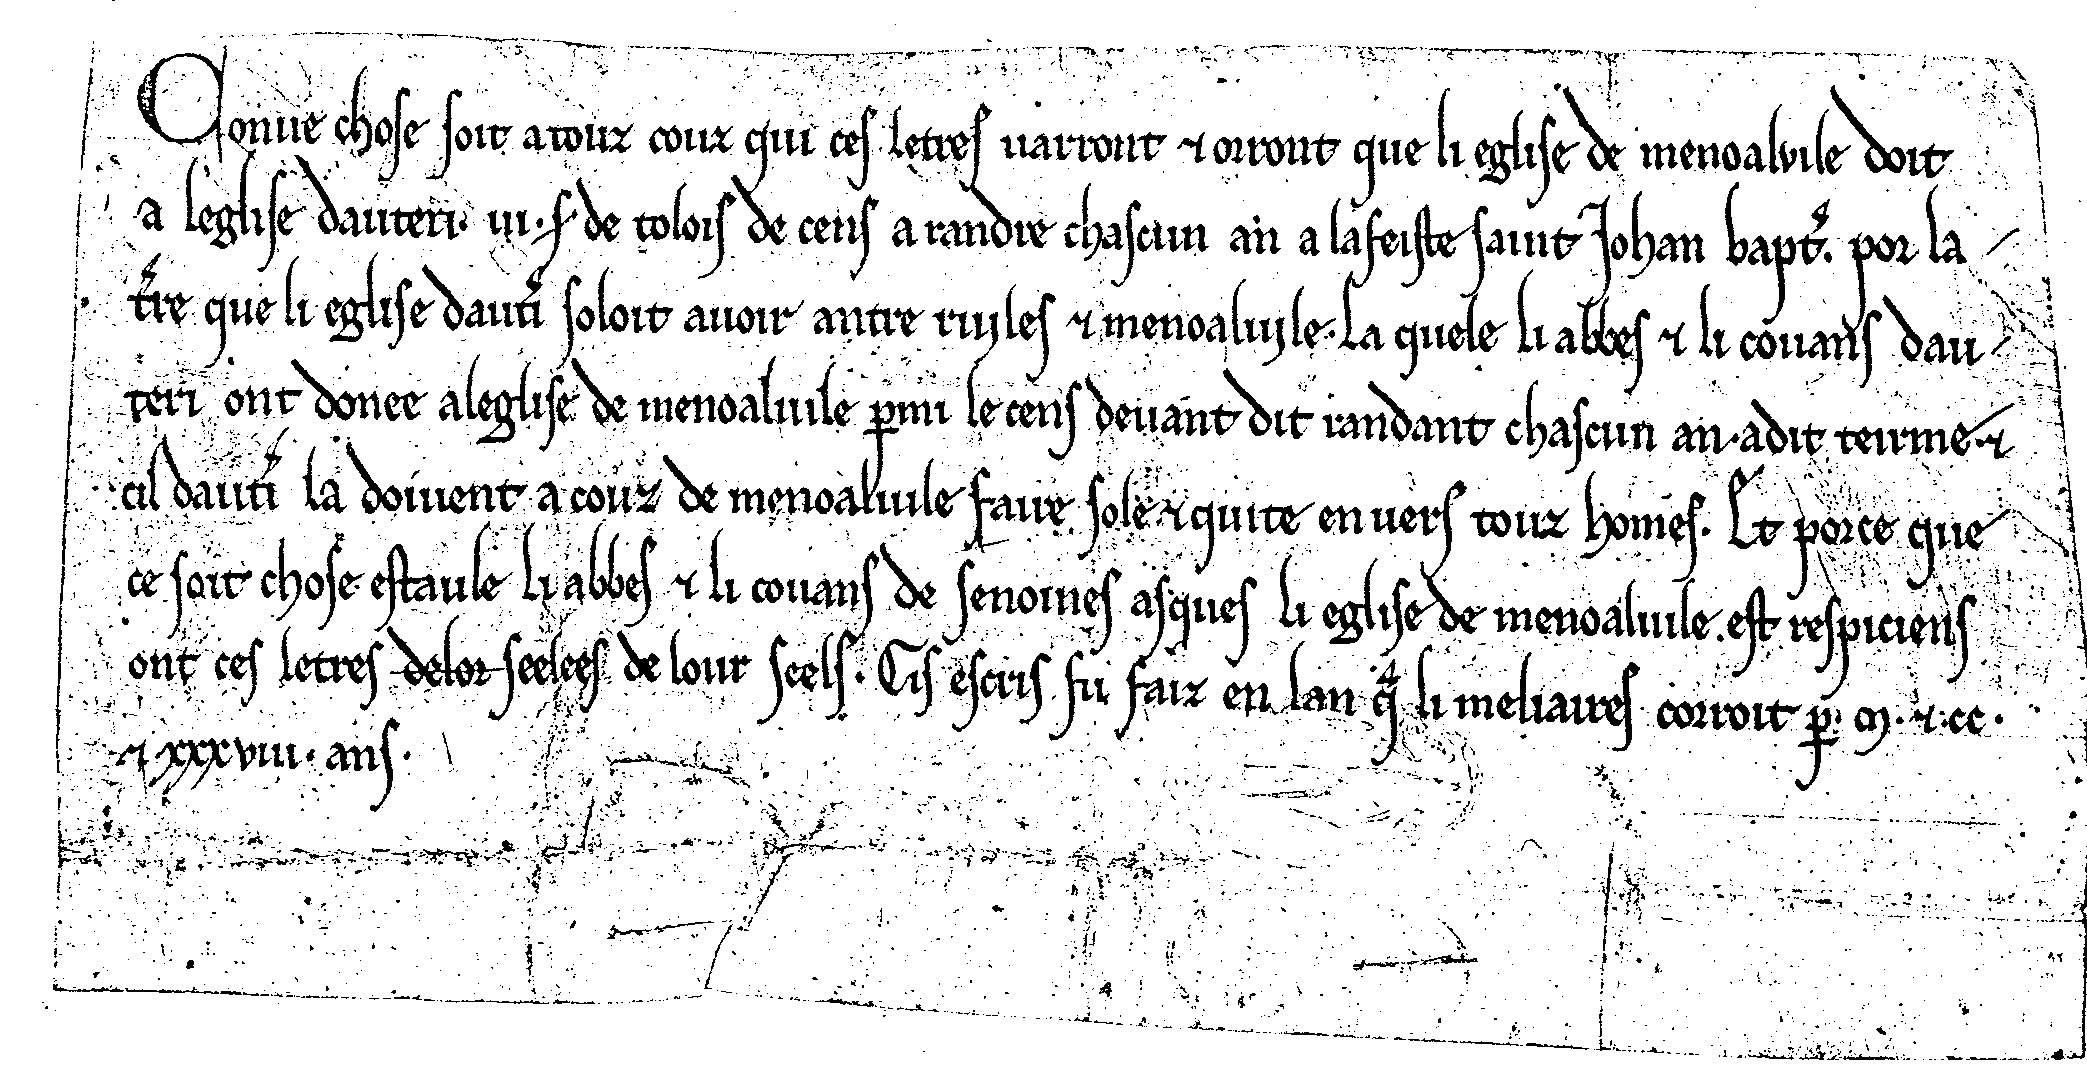 Conue chose soit a touz couz qui ces letres uarront ⁊ orront que li eglise de menoaluile doit
a leglise dauteri. iii. s. de tolois de cens a randre chascun an a lafeiste saint Johan bapt̾. por la
t̾re que li eglise daut̾i soloit auoir antre riyles ⁊ menoaliyle. La quele li abbes ⁊ li couans dau
teri ont donee aleglise de menoaluile ꝑmi le cens deuant dit randant chascun an. adit teirme. ⁊
cil daut̾i la doiuent a couz de menoaluile faire sole ⁊ quite enuers touz homes. Et porce que
ce soit chose estaule li abbes ⁊ li couans de senoines asques li eglise de menoaluile. est respiciens
ont ces letres delor seelees de lour seels. Cis escris fu faiz en lan q̾ li meliaires corroit ꝑ. m. ⁊. cc.
⁊ xxxviii. ans.